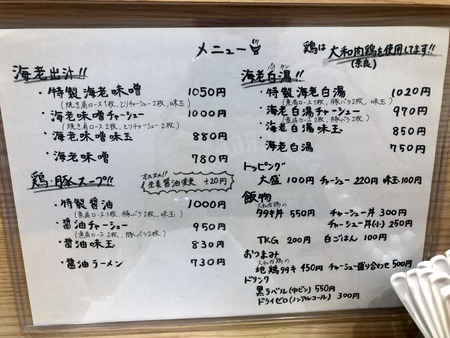 メニュー
鶏は大和肉鶏を使用してます!!
(奈良)
海老出汁!!
・特製海老味噌 1050円
(焼き肩ロース1枚、とりチャーシュー1枚、味玉)
・海老味噌チャーシュー 1000円
(焼き肩ロース2枚、とりチャーシュー2枚)
・海老味噌味玉 880円
・海老味噌 780円
鶏・豚スープ!!
オススメ!! 生醤油変更 +20円
・特製醤油 1000円
(焦肩ロース1枚、豚バラ2枚、味玉)
・醤油チャーシュー 950円
(焦肩ロース2枚、豚バラ2枚)
・醤油味玉 830円
・醤油ラーメン 730円
海老白湯!!
パイタン
・特製海老白湯 1020円
(焦肩ロース1枚、豚バラ2枚、味玉)
・海老白湯チャーシュー 970円
(焦肩ロース2枚、豚バラ2枚)
・海老白湯味玉 850円
・海老白湯 750円
トッピング
大盛 100円 チャーシュー 220円 味玉 100円
飯物
大和肉鶏の
タタキ丼 550円 チャーシュー丼 300円
チャーシュー丼(小) 250円
TKG 200円 白ごはん 100円
おつまみ
大和肉鶏の
地鶏タタキ 450円 チャーシュー盛り合わせ 500円
ドリンク
黒ラベル(中ビン) 550円
ドライゼロ(ノンアルコール) 300円